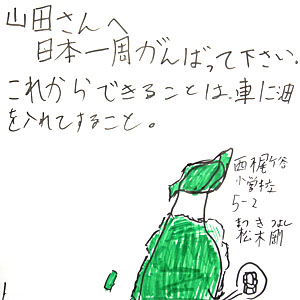 山田さんへ
日本一周がんばって下さい.
これからできることは、車に油
を入れてすること。
西梶ケ谷
小学校
5-2
まつ き つよし
松木剛